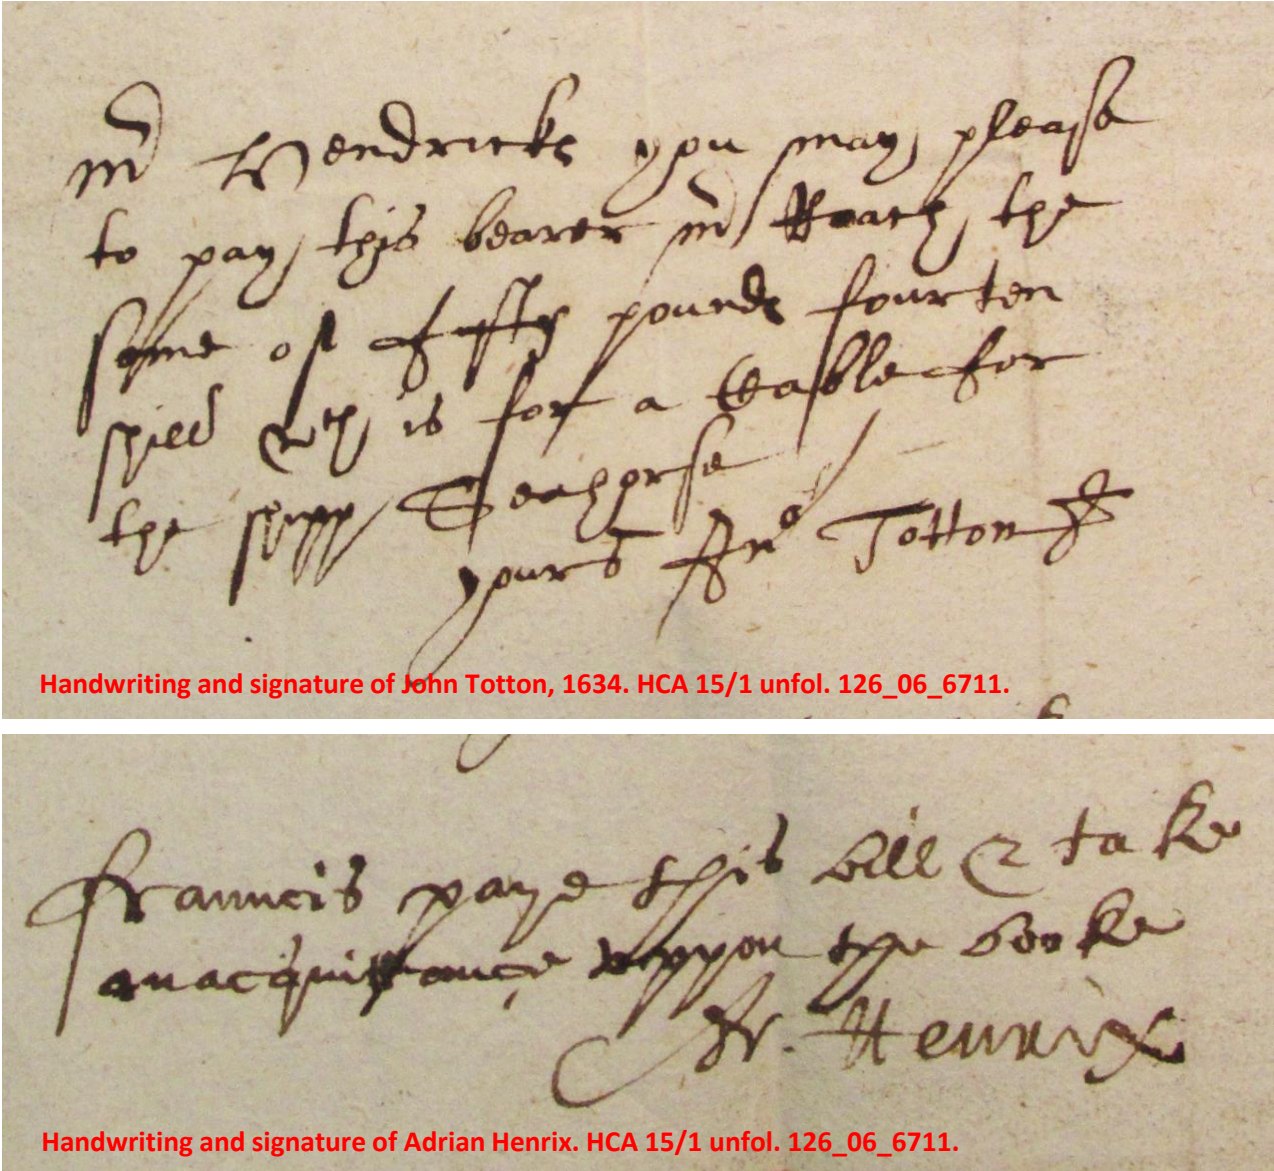 mr Hendricks you may please
to pay this bearer mr Roach the
some of fifty pounds fourten
shill wch is for a Cable for
the shipp Seahorse
yours Jno Totton
Handwriting and signature of John Totton, 1634. HCA 15/1 unfol. 126_06_6711.
ffrancis paye this bill & take
an acquittance uppon the booke
Ar. Henrix
Handwriting and signature of Adrian Henrix. HCA 15/1 unfol. 126_06_6711.